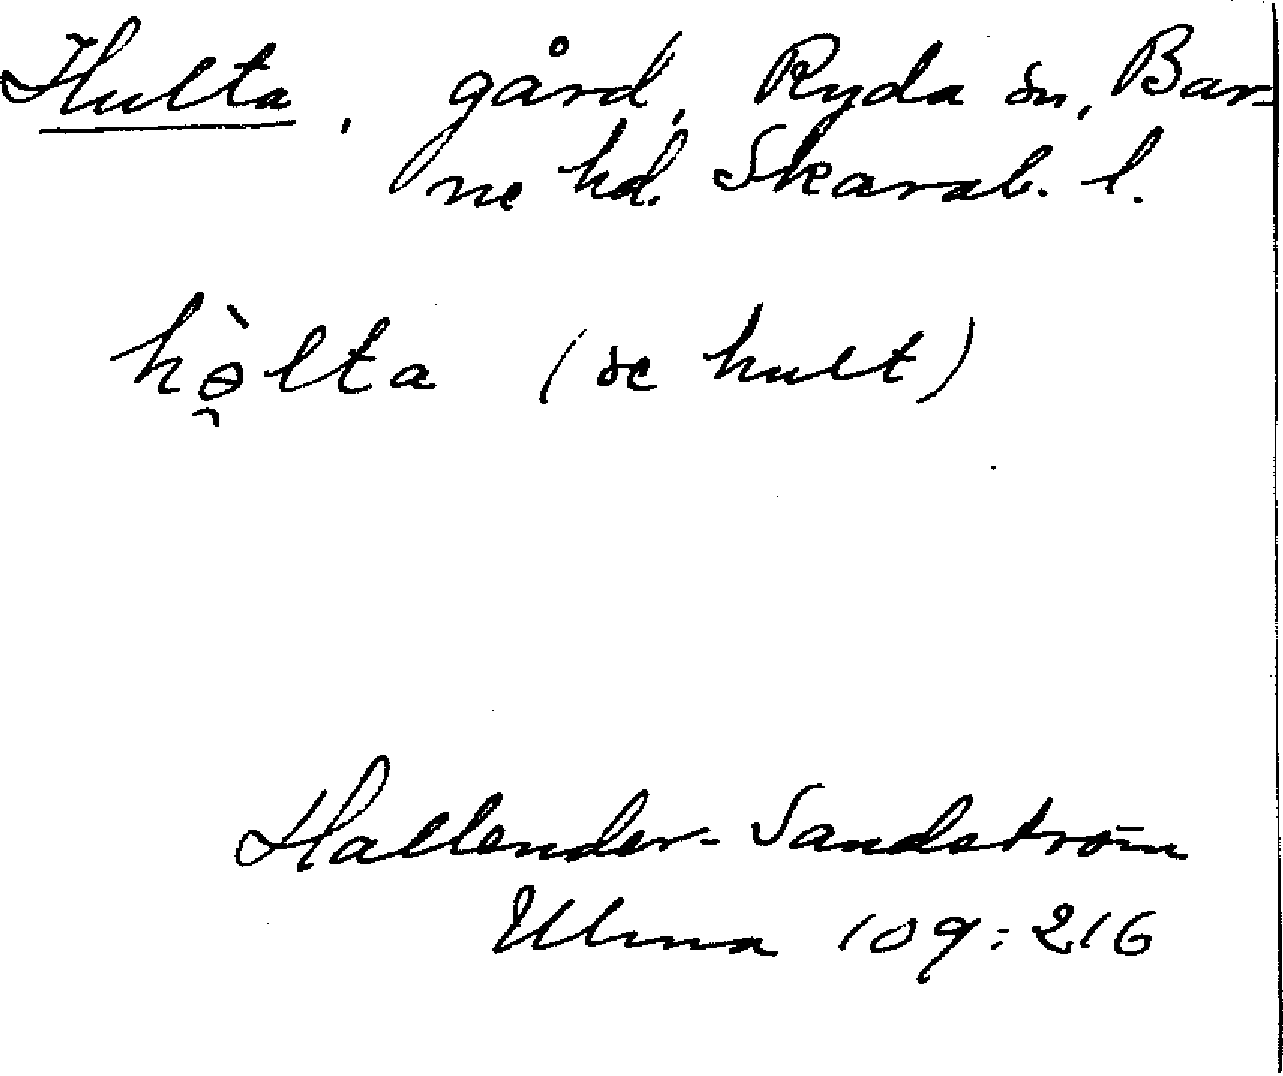 Hulta, gård, Ryda sn, Bar-
ne hd. Skarab. l.
hə̀lta (se hult)
Hallender-Sandström
Ulma 109:216